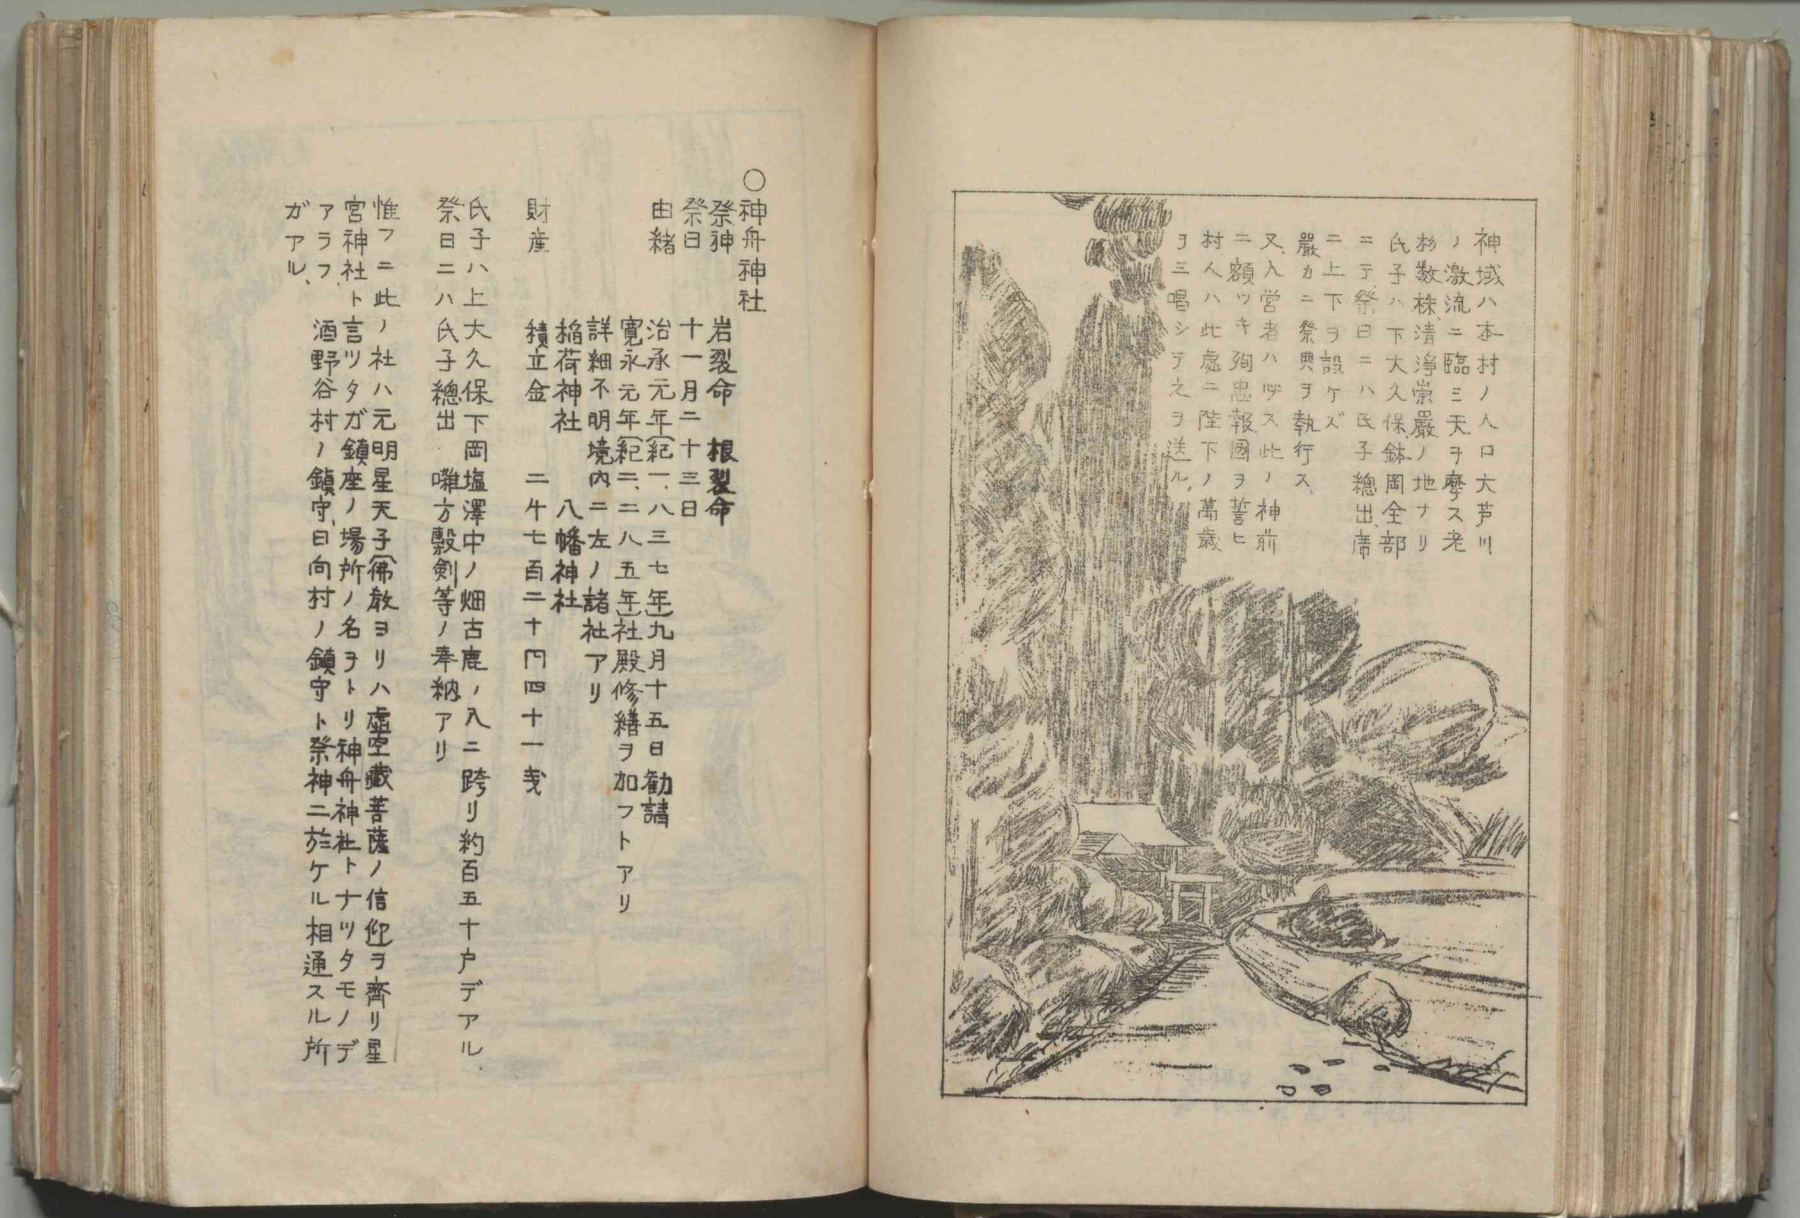 神域ハ本村ノ入口大芦川
ノ激流ニ臨ミ天ヲ摩ス老
杉数株、清浄崇嚴ノ地ナリ
氏子ハ下大久保、鉢岡全部
ニテ祭日ニハ氏子總出席
ニ上下ヲ設ケズ
嚴カニ祭典ヲ執行ス、
又、入営者ハ必ス此ノ神前
ニ額ツキ殉忠報國ヲ誓ヒ
村人ハ此處ニ陛下ノ萬歳
ヲ三唱シテ之ヲ送ル、
○神舟神社
祭神 岩裂命 根裂命
祭日 十一月二十三日
由緒 治承元年(紀一、八三七年)九月十五日勧請
寛永元年(紀二、二八五年)社殿修繕ヲ加フトアリ
詳細不明境内ニ左ノ諸社アリ
稲荷神社 八幡神社
財産 積立金 二千七百二十円四十一戔
氏子ハ上大久保下岡塩澤中ノ畑古鹿ノ入ニ跨リ約百五十戸デアル
祭日ニハ氏子總出 囃方 剣等ノ奉納アリ
惟フニ此ノ社ハ元明星天子(佛教ヨリハ虚空蔵菩薩ノ信仰ヲ齊リ星
宮神社ト言ツタガ鎮座ノ場所ノ名ヲトリ神舟神社トナツタモノデ
アラフ、酒野谷村ノ鎮守、日向村ノ鎮守ト祭神ニ於ケル相通スル所
ガアル、